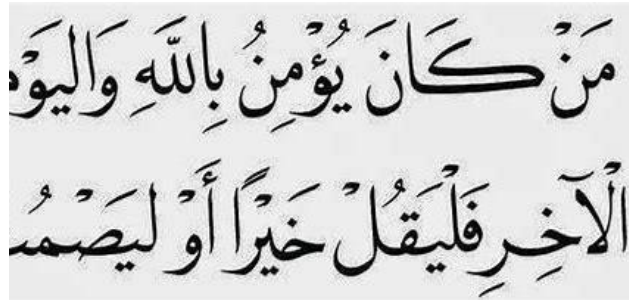 مَنْ كَانَ يُؤْمِنُ بِاللَّهِ وَالْيَوْ
الْآخِرِ فَلْيَقُلْ خَيْرًا أَوْ لِيَصْمُ